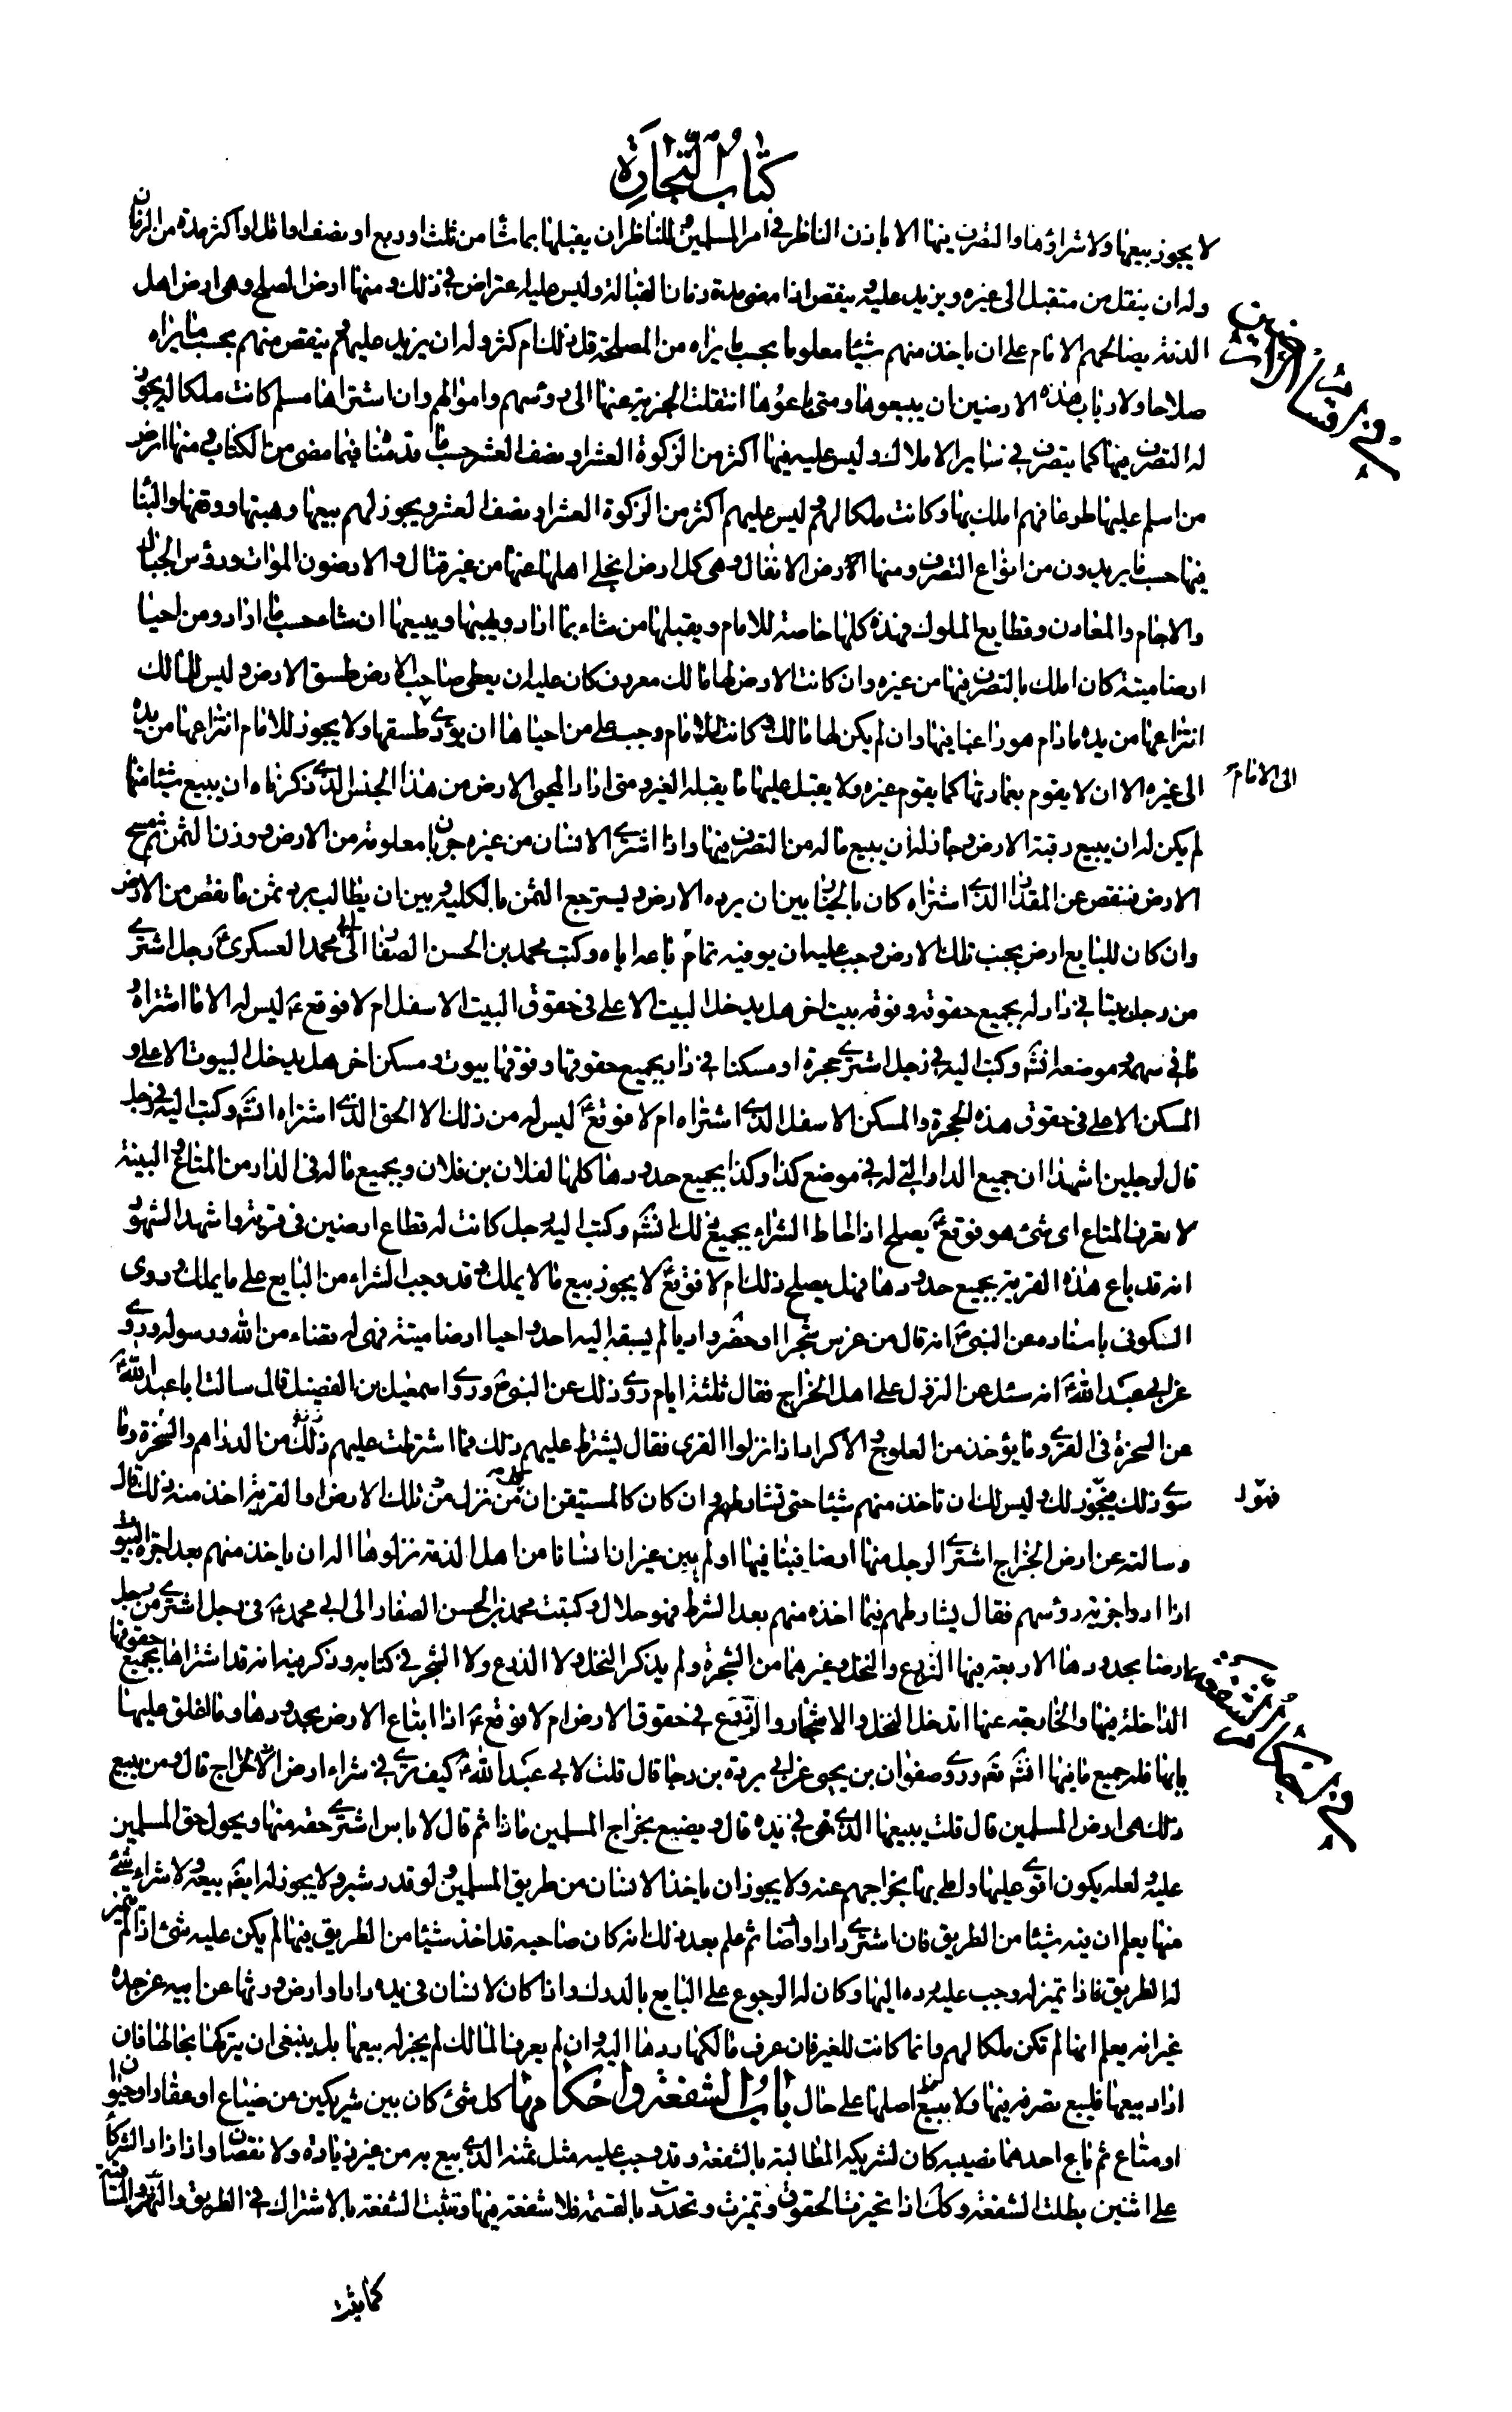 كتاب التجارة
لا يجوز بيعها ولا شراؤها والتصرف فيها الا باذن الناظر في امر المسلمين وللناظر ان يقبلها بما شا من ثلث او ربع او نصف او اقل او اكثر مدة من الزمان
وله ان ينقل من متقبل الى غيره ويزيد عليه وينقص اذا مضى مدة زمان القبالة وليس عليه اعتراض في ذلك ومنها ارض الصلح وهي ارض اهل
الذمة يصالحهم الامام على ان ياخذ منهم شيئا معلوما بحسب ما يراه من المصلحة قل ذلك ام كثر وله ان يزيد عليهم وينقص منهم بحسب ما يراه
صلاحا ولارباب هذه الارضين ان يبيعوها ومتى باعوها انتقلت الجزية عنها الى رؤسهم واموالهم وان اشتراها مسلم كانت ملكا له يجوز
له التصرف فيها كما يتصرف في ساير الاملاك وليس عليه فيها اكثر من الزكوة العشر او نصف العشر حسب ما قدمنا فيما مضى من الكتاب ومنها ارض
من اسلم عليها طوعا فهم املك بها وكانت ملكا لهم وليس عليهم اكثر من الزكوة العشر او نصف العشر ويجوز لهم بيعها وهبتها ووقفها والبنا
فيها حسب ما يريدون من انواع التصرف ومنها الارض الانفال وهي كل ارض انجلى اهلها عنها من غير قتال والارضون الموات ورؤس الجبال
والاجام والمعادن وقطايع الملوك فهذه كلها خاصة للامام ويقبلها من شاء بما اراد ويهبها ويبيعها ان شاء حسب ما اراد ومن احيا
ارضا ميتة كان املك بالتصرف فيها من غيره وان كانت الارض لها مالك معروف كان عليه ان يعطى صاحب الارض طسق الارض وليس للمالك
انتزاعها من يده ما دام هو راغبا فيها وان لم يكن لها مالك وكانت للامام وجب على من احياها ان يؤدي طسقها ولا يجوز للامام انتزاعها من يده
الى غيره الا ان لا يقوم بعمارتها كما يقوم غيره ولا يقبل عليها ما يقبله الغير ومتى اراد المحيى الارض من هذا الجنس الذي ذكرناه ان يبيع شيئا منها
الى الامام
لم يكن له ان يبيع رقبة الارض وجاز له ان يبيع ما له من التصرف فيها واذا اشترى الانسان من غيره جربانا معلومة من الارض ووزن الثمن ثم مسح
الارض فنقص عن المقدار الذي اشتراه كان بالخيار بين ان يرد الارض ويسترجع الثمن بالكلية وبين ان يطالب برد ثمن ما نقص من الارض
وان كان للبايع ارض بجنب تلك الارض وجب عليه ان يوفيه تمام ما باعه اياه وكتب محمد بن الحسن الصفار الى ابي محمد العسكري رجل اشترى
من رجل بيتا في دار له بجميع حقوقه وفوقه بيت اخر هل يدخل البيت الاعلى في حقوق البيت الاسفل ام لا فوقع ليس له الا ما اشتراه
في سهمه وموضعه وكتب اليه في رجل اشترى حجرة او مسكنا في دار بجميع حقوقها وفوقها بيوت ومسكن اخر هل يدخل البيوت الاعلى و
المسكن الاعلى في حقوق هذه الحجرة والمسكن الاسفل الذي اشتراه ام لا فوقع ليس له من ذلك الا الحق الذي اشتراه وكتب اليه في رجل
قال لرجلين اشهدا ان جميع الدار التي له في موضع كذا وكذا بجميع حدودها كلها لفلان بن فلان وجميع ما له في الدار من المتاع والبينة
لا تعرف المتاع اي شئ هو فوقع يصلح اذا احاط الشراء بجميع ذلك وكتب اليه رجل كانت له قطاع ارضين في قرية واشهد الشهود
انه قد باع هذه القرية بجميع حدودها فهل يصلح ذلك ام لا فوقع لا يجوز بيع ما لا يملك وقد وجب الشراء من البايع على ما يملك وروى
السكونى باسناده عن النبي انه قال من غرس شجرا او حفر واديا لم يسبقه اليه احد او احيا ارضا ميتة فهي له قضاء من الله ورسوله وروي
عن ابى عبد الله انه سئل عن النزول على اهل الخراج فقال ثلثة ايام روى ذلك عن النبي وروى اسمعيل بن الفضيل قال سالت ابا عبد الله
عن السخرة في القرى وما يؤخذ من العلوج والاكراد اذا نزلوا القرى فقال يشترط عليهم ذلك فما اشترطت عليهم من الدراهم والسخرة وما
سوى ذلك فيجوز لك وليس لك ان تاخذ منهم شيئا حتى تشارطهم وان كان كالمستيقن ان من نزل تلك الارض او القرية اخذ منه ذلك قال
وسالته عن ارض الخراج اشترى الرجل منها ارضا فبنا فيها او لم يبن غير ان اناسا من اهل الذمة نزلوها اله ان ياخذ منهم بعد اجرة البيوت
اذا ادوا جزية رؤسهم فقال يشارطهم فيما اخذه منهم بعد الشرط فهو حلال وكتبت محمد بن الحسن الصفار الى ابي محمد في رجل اشترى من رجل
ارضا بحدودها الاربعة فيها الزرع والنخل وغيرهما من الشجرة ولم يذكر النخل ولا الزرع ولا الشجر في كتابه وذكر فيه انه قد اشتراها بجميع حقوقها
الداخلة فيها والخارجة عنها اتدخل النخل والاشجار والزرع في حقوق الارض ام لا فوقع اذا ابتاع الارض بحدودها وما اغلق عليها
بابها فله جميع ما فيها وروى صفوان بن يحيى عن ابي بردة بن رجا قال قلت لابي عبد الله كيف ترى في شراء ارض الخراج قال ومن يبيع
ذلك هى ارض المسلمين قال قلت يبيعها الذي هي في يده قال ويصنع بخراج المسلمين ما ذا ثم قال لا باس اشترى حقه منها ويحول حق المسلمين
عليه ولعله يكون اقوى عليها واملى بها بخراجهم عنه ولا يجوز ان ياخذ الانسان من طريق المسلمين ولو قدر شبر ولا يجوز له ايضا بيعه ولا شراء شئ
منها يعلم ان فيه شيئا من الطريق فان اشترى دارا او ارضا ثم علم بعد ذلك انه كان صاحبه قد اخذ شيئا من الطريق فيها لم يكن عليه شئ اذا لم يتميز
له الطريق فاذا تميز له وجب عليه رده اليها وكان له الرجوع على البايع بالدرك واذا كان لانسان في يده دار او ارض ورثها عن ابيه عن جده
غير انه يعلم انها لم تكن ملكا لهم وانما كانت للغير فان عرف مالكها ردها اليه وان لم يعرف المالك لم يجز له بيعها بل ينبغي ان يتركها بحالها فان
اراد بيعها فليبع تصرفه فيها ولا يبيع اصلها على حال باب الشفعة واحكامها كل شئ كان بين شريكين من ضياع او عقار او حيوان
او متاع ثم باع احدهما نصيبه كان لشريكه المطالبة بالشفعة وقد وجب عليه مثل ثمنه الذي بيع به من غير زيادة ولا نقصان واذا زاد الشركا
على اثنين بطلت الشفعة وكك اذا تحيزت الحقوق وتميزت وتحددت بالقسمة فلا شفعة فيها وتثبت الشفعة بالاشتراك في الطريق والنهر والساقية
كما يثبت